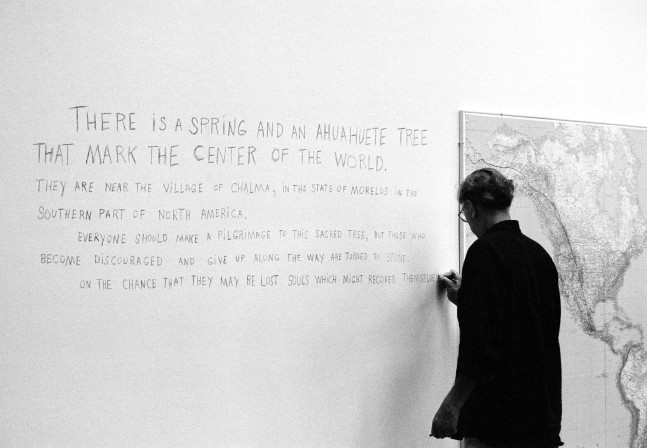 THERE IS A SPRING AND AN AHUAHUETE TREE
THAT MARK THE CENTER OF THE WORLD.
THEY ARE NEAR THE VILLAGE OF CHALMA, IN THE STATE OF MORELOS IN THE
SOUTHERN PART OF NORTH AMERICA.
EVERYONE SHOULD MAKE A PILGRIMAGE TO THIS SACRED TREE, BUT THOSE WHO
BECOME DISCOURAGED AND GIVE UP ALONG THE WAY ARE TURNED TO STONE.
ON THE CHANCE THAT THEY MAY BE LOST SOULS WHICH MIGHT RECOVER THEMSELVE